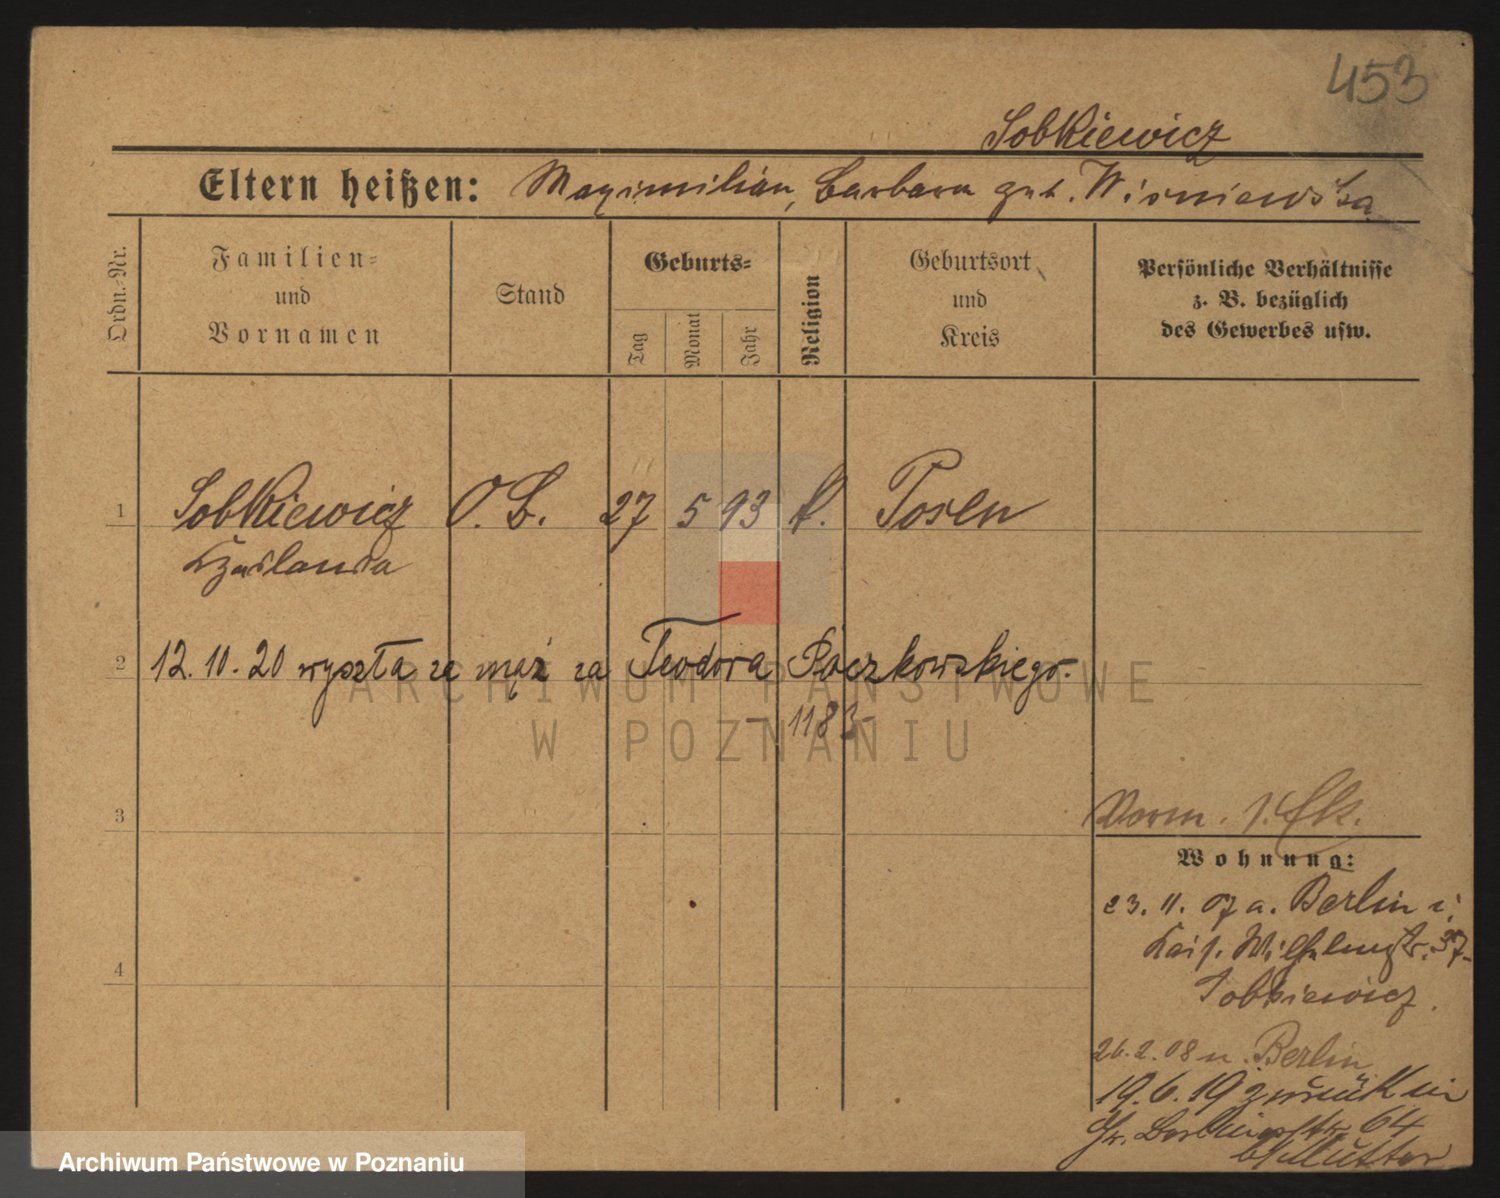 453
Sobkiewicz
Eltern heißen: Maximilian, Barbara geb. Wisniewska
Ordn.-Nr.
Familien- und Vornamen
Stand
Geburts-
Tag
Monat
Jahr
Religion
Geburtsort und Kreis
Persönliche Verhältnisse
z. B. bezüglich
des Gewerbes usw.
1 Sobkiewicz O. S. 27 5 93 k. Posen
Czeslawa
2 12.10.20 wyszła za mąż za Teodora Paczkowskiego.
- 1183 -
3
Vorm.
Wohnung:
23. 11. 07 a. Berlin i.
Kais. Wilhelmstr. 37
Sobkiewicz.
4
26.2.08 n. Berlin
19.6.19 zurück in
Gr. Berlinerstr. 64
b/Mutter
ARCHIWUM PAŃSTWOWE
W POZNANIU
Archiwum Państwowe w Poznaniu